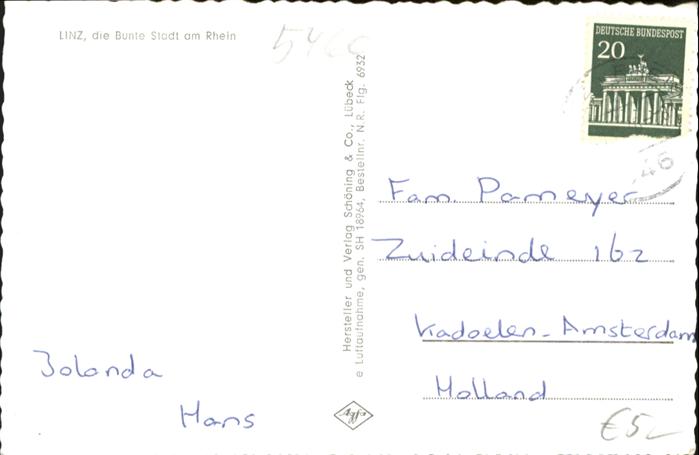 LINZ, die Bunte Stadt am Rhein
DEUTSCHE BUNDESPOST
20
46
Hersteller und Verlag Schöning & Co., Lübeck
e Luftaufnahme, gen. SH 18964, Bestellnr. N.R. Flg. 6932
Fam. Pameyer
Zuideinde 162
Kadoelen - Amsterdam
Holland
Jolanda
Hans
Agfa
€5